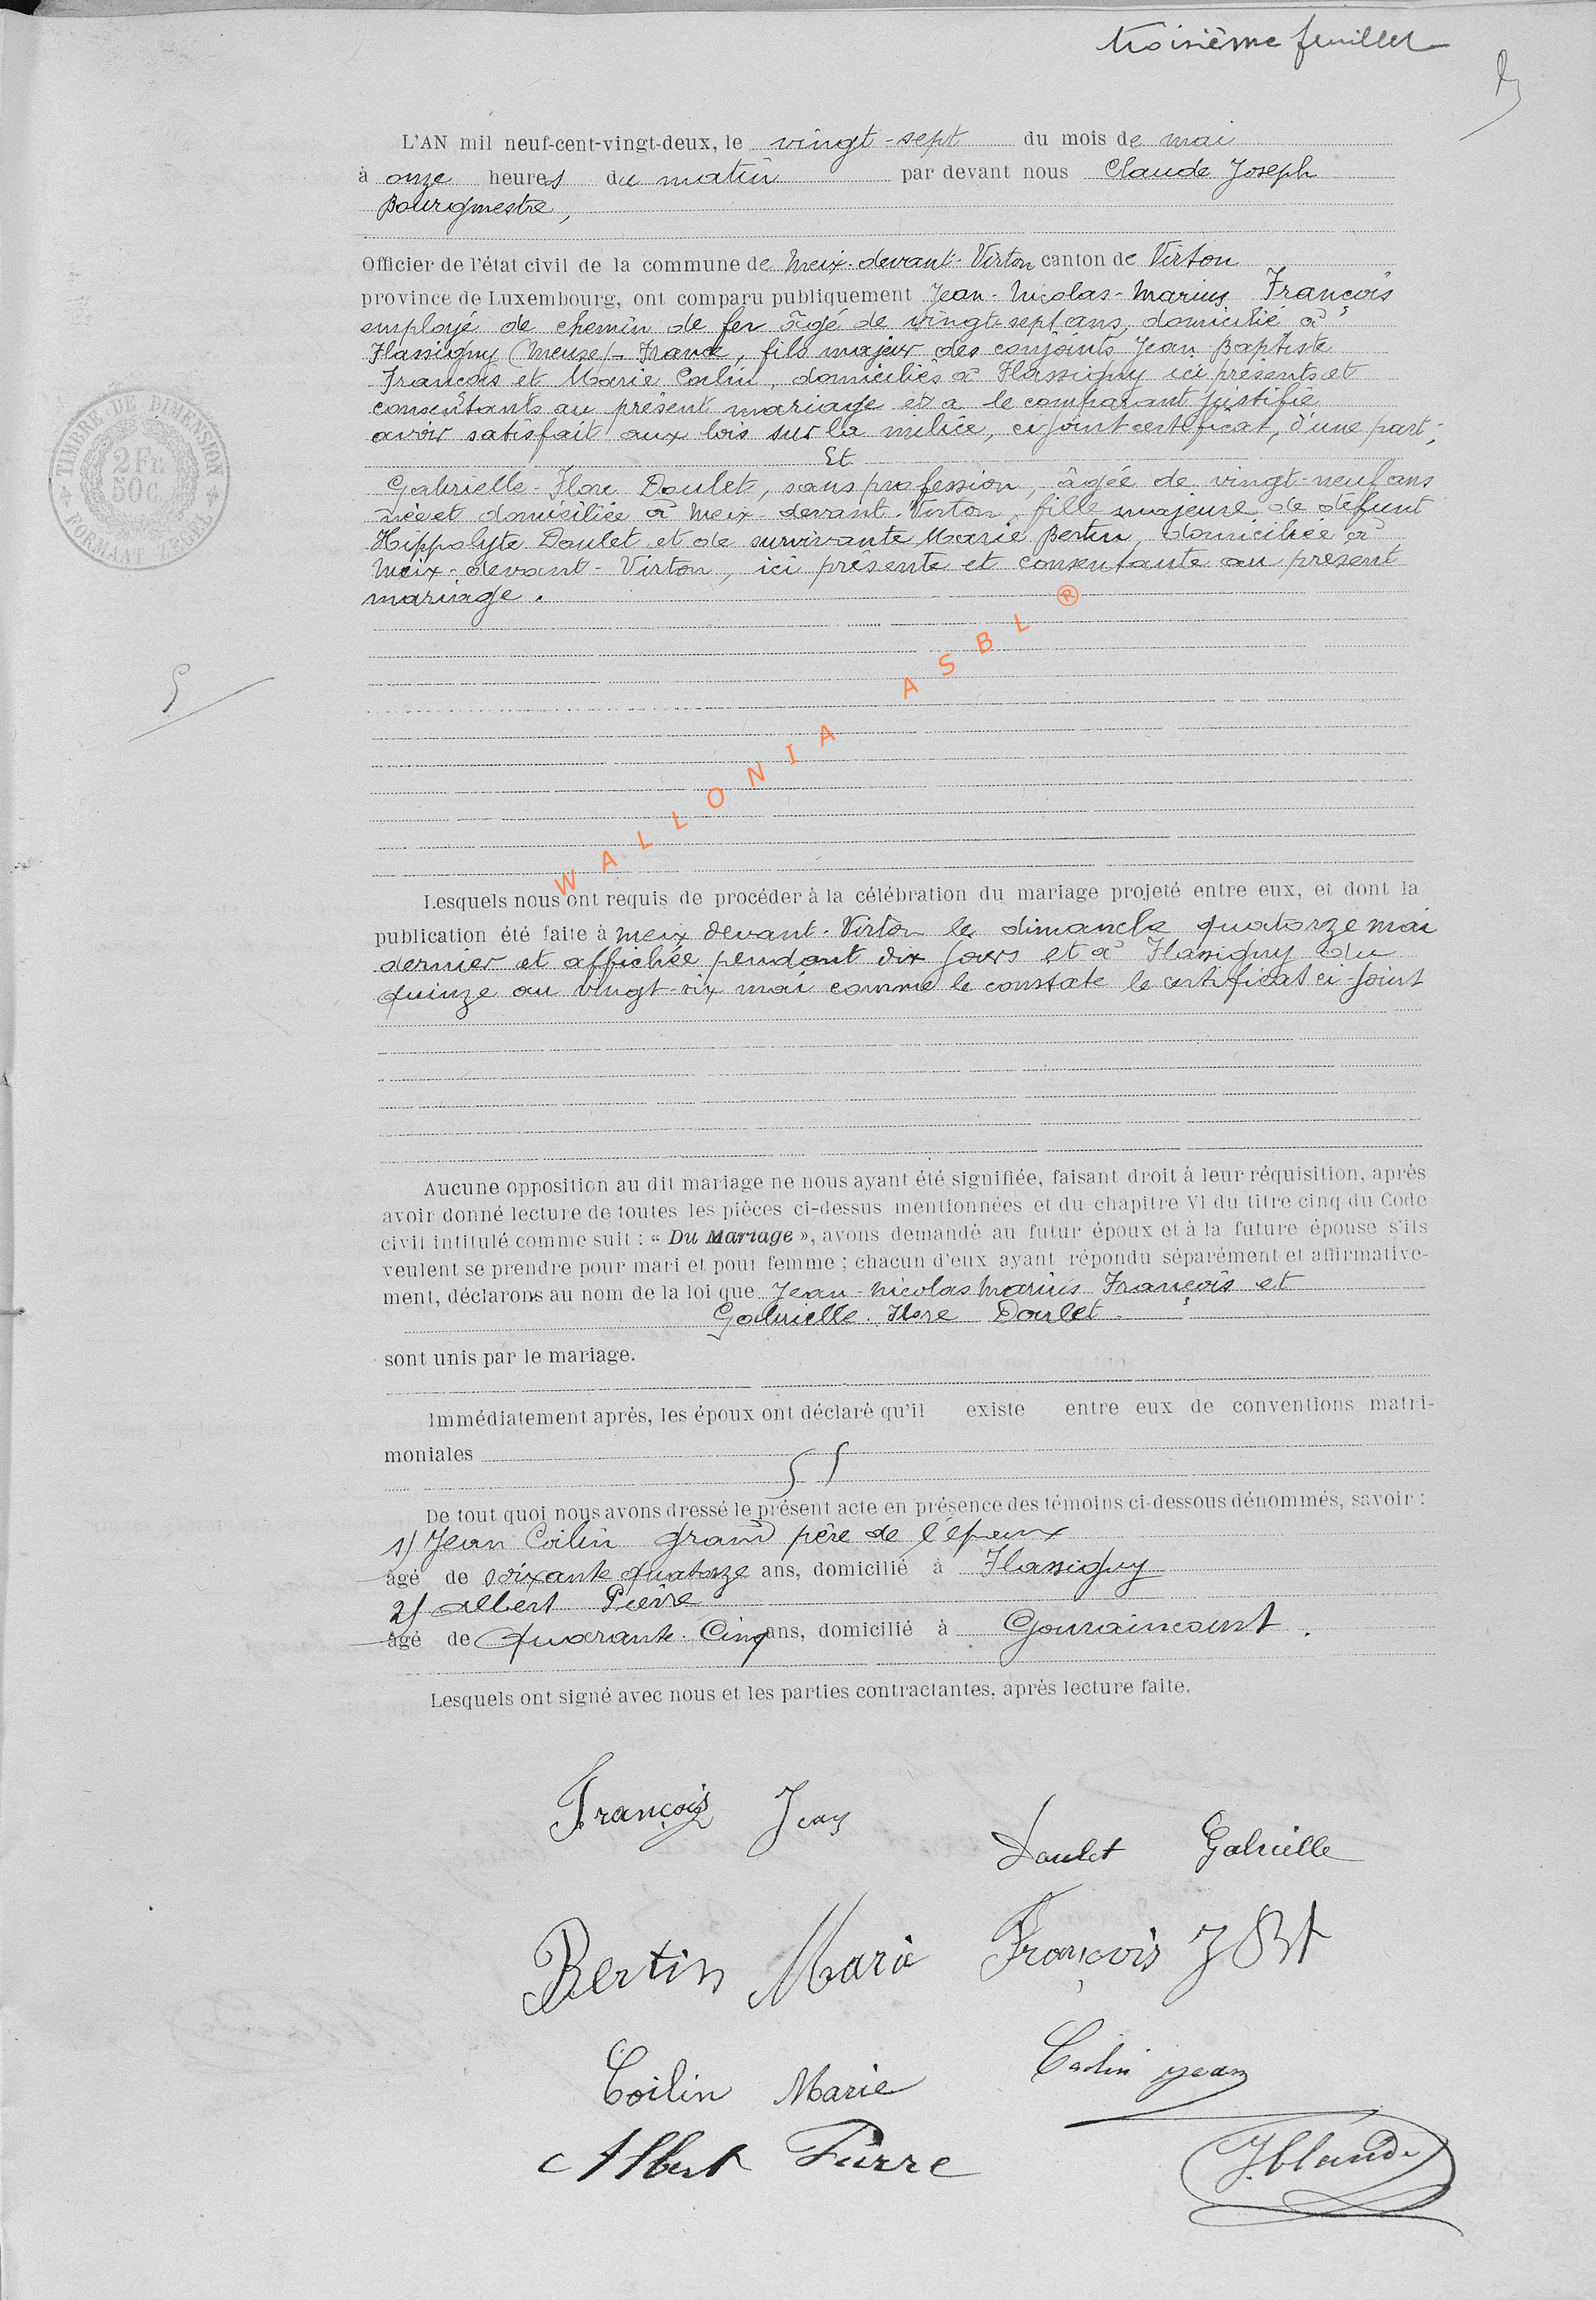 troisième feuillet
L'AN mil neuf-cent-vingt-deux, le vingt-sept du mois de mai
à onze heures du matin par devant nous Claude Joseph
Bourgmestre,
Officier de l'état civil de la commune de Meix-devant-Virton canton de Virton
province de Luxembourg, ont comparu publiquement Jean-Nicolas-Marius François
employé de chemin de fer âgé de vingt-sept ans, domicilié à
Flassigny (Meuse) - France, fils majeur des conjoints Jean Baptiste
François et Marie Coilin, domiciliés à Flassigny ici présents et
consentants au présent mariage et a le comparant justifié
avoir satisfait aux lois sur la milice, ci-joint certificat, d'une part;
Et
Gabrielle-Flore Doulet, sans profession, âgée de vingt-neuf ans
née et domiciliée à Meix-devant-Virton, fille majeure de défunt
Hippolyte Doulet et de survivante Marie Bertin, domiciliée à
Meix-devant-Virton, ici présente et consentante au présent
mariage.
TIMBRE DE DIMENSION
2 Fr.
50 C.
FORMAAT ZEGEL
WALLONIA ASBL ®
5
Lesquels nous ont requis de procéder à la célébration du mariage projeté entre eux, et dont la
publication été faite à Meix devant-Virton le dimanche quatorze mai
dernier et affichée pendant dix jours et à Flassigny du
quinze au vingt-six mai comme le constate le certificat ci-joint
Aucune opposition au dit mariage ne nous ayant été signifiée, faisant droit à leur réquisition, après
avoir donné lecture de toutes les pièces ci-dessus mentionnées et du chapitre VI du titre cinq du Code
civil intitulé comme suit : « Du Mariage », avons demandé au futur époux et à la future épouse s'ils
veulent se prendre pour mari et pour femme ; chacun d'eux ayant répondu séparément et affirmative-
ment, déclarons au nom de la loi que Jean-Nicolas Marius François et
Gabrielle-Flore Doulet
sont unis par le mariage.
Immédiatement après, les époux ont déclaré qu'il existe entre eux de conventions matri-
moniales
De tout quoi nous avons dressé le présent acte en présence des témoins ci-dessous dénommés, savoir :
1) Jean Coilin grand père de l'époux
âgé de soixante quatorze ans, domicilié à Flassigny
2) Albert Pierre
âgé de quarante-Cinq ans, domicilié à Gouraincourt.
Lesquels ont signé avec nous et les parties contractantes, après lecture faite.
François Jean
Doulet Gabrielle
Bertin Marie François J Bt
Coilin Marie Coilin jean
Albert Pierre J. Claude